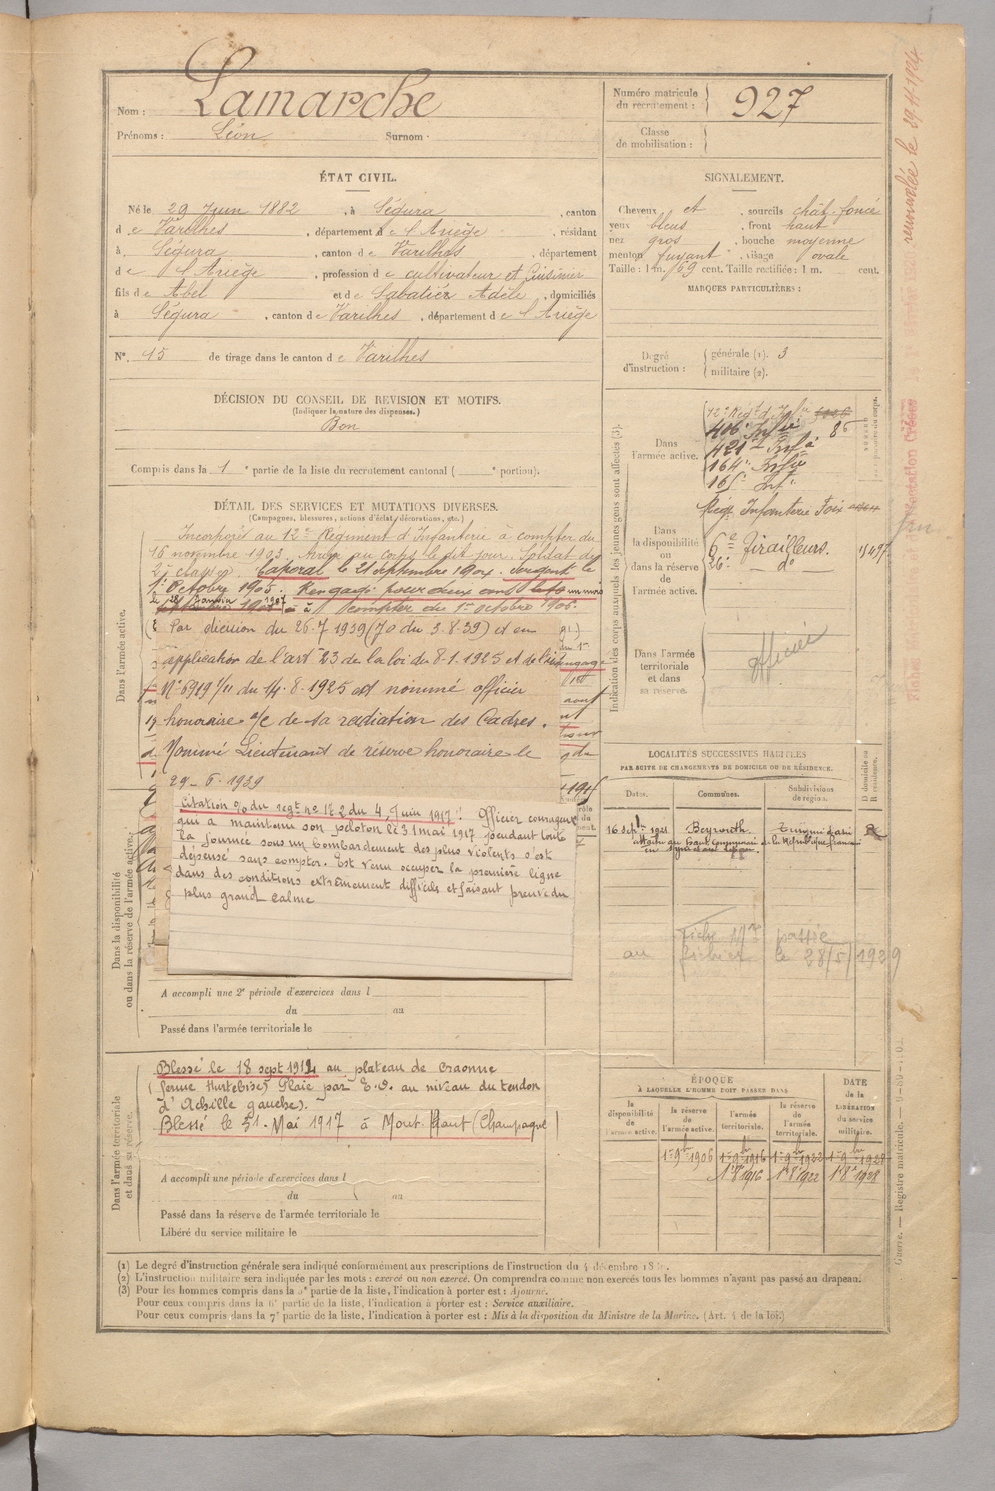 Nom : Lamarche
Prénoms : Léon Surnom :
Numéro matricule du recrutement : 927
Classe de mobilisation :
ÉTAT CIVIL.
Né le 29 Juin 1882, à Ségura, canton
de Varilhes, département de l'Ariège, résidant
à Ségura, canton de Varilhes, département
de l'Ariège, profession de cultivateur et Cuisinier
fils de Abel et de Sabatier Adèle, domiciliés
à Ségura, canton de Varilhes, département de l'Ariège
N° 15 de tirage dans le canton de Varilhes
DÉCISION DU CONSEIL DE REVISION ET MOTIFS.
(Indiquer la nature des dispenses.)
Bon
Compris dans la 1e partie de la liste du recrutement cantonal ( e portion).
DÉTAIL DES SERVICES ET MUTATIONS DIVERSES.
(Campagnes, blessures, actions d'éclat, décorations, etc.)
Dans l'armée active.
Incorporé au 12e Régiment d'Infanterie à compter du
16 novembre 1903. Arrivé au corps le dit jour. Soldat de
2e classe. Caporal le 21 septembre 1904. Sergent le
1er Octobre 1905. Rengagé pour deux ans
à compter du 1er octobre 1906.
Par décision du 26-7 1939 (JO du 3-8-39) et en
application de l'art 23 de la loi du 8-1-1925 et de l'
N° 6919 1/11 du 14-8-1925 est nommé officier
honoraire a/c de sa radiation des Cadres.
Nommé Lieutenant de réserve honoraire le
29-6-1939
Citation o/ du regt no 172 du 4 Juin 1917 : Officier courageux
qui a maintenu son peloton le 31 mai 1917 pendant toute
la journée sous un bombardement des plus violents s'est
dépensé sans compter. Est venu occuper la première ligne
dans des conditions extrêmement difficiles et faisant preuve du
plus grand calme
Dans la disponibilité
ou dans la réserve de l'armée active.
A accompli une 2e période d'exercices dans l
du au
Passé dans l'armée territoriale le
Dans l'armée territoriale
et dans sa réserve.
Blessé le 18 sept 1914 au plateau de Craonne
(ferme Hurtebise) Plaie par E.O. au niveau du tendon
d'Achille gauche).
Blessé le 31 Mai 1917 à Mont-Haut (Champagne)
A accompli une période d'exercices dans l
du au
Passé dans la réserve de l'armée territoriale le
Libéré du service militaire le
SIGNALEMENT.
Cheveux et, sourcils chât-foncé
yeux bleus, front haut
nez gros, bouche moyenne
menton fuyant, visage ovale
Taille : 1 m. 69 cent. Taille rectifiée : 1 m. cent.
MARQUES PARTICULIÈRES :
Degré d'instruction :
générale (1). 3
militaire (2).
Indication des corps auxquels les jeunes gens sont affectés (3).
Dans l'armée active.
416e Infie
421e Infie
164e Infie
165e Infie
Dans la disponibilité ou dans la réserve de l'armée active.
Régt Infanterie Foix
6e Tirailleurs.
26e do
Dans l'armée territoriale et dans sa réserve.
officier
LOCALITÉS SUCCESSIVES HABITÉES
PAR SUITE DE CHANGEMENTS DE DOMICILE OU DE RÉSIDENCE.
Dates. Communes. Subdivisions de région. D domicile ou R résidence.
16 sept 1921 Beyrouth. R
Fiche passée
au fichier le 28/5/1929
ÉPOQUE
À LAQUELLE L'HOMME DOIT PASSER DANS
DATE
de la
LIBÉRATION
du service
militaire.
la disponibilité de l'armée active. la réserve de l'armée active. l'armée territoriale. la réserve de l'armée territoriale.
1er 9bre 1906 1er 9bre 1916 1er 9bre 1922
1er 8 1916 1er 8 1922 1er 8 1928
(1) Le degré d'instruction générale sera indiqué conformément aux prescriptions de l'instruction du 4 décembre
(2) L'instruction militaire sera indiquée par les mots : exercé ou non exercé. On comprendra comme non exercés tous les hommes n'ayant pas passé au drapeau.
(3) Pour les hommes compris dans la 5e partie de la liste, l'indication à porter est : Ajourné.
Pour ceux compris dans la 6e partie de la liste, l'indication à porter est : Service auxiliaire.
Pour ceux compris dans la 7e partie de la liste, l'indication à porter est : Mis à la disposition du Ministre de la Marine. (Art. 4 de la loi.)